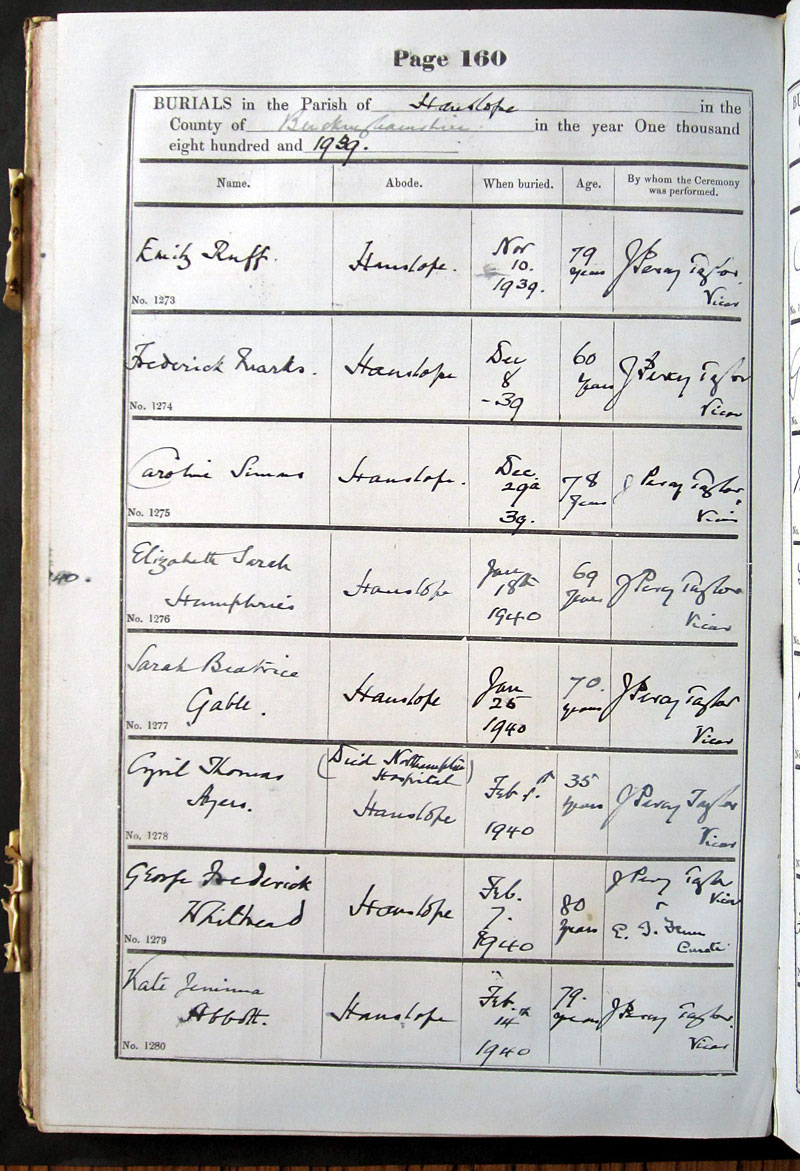 Page 160
BURIALS in the Parish of Hanslope in the
County of Buckinghamshire in the year One thousand
eight hundred and 1939.
Name. Abode. When buried. Age. By whom the Ceremony was performed.
Emily Ruff. Hanslope. Nov 10. 1939. 79 years J Percy Taylor. Vicar
No. 1273
Frederick Marks. Hanslope Dec 8 -39 60 years J Percy Taylor Vicar
No. 1274
Caroline Simms Hanslope. Dec 29 39. 78 years J Percy Taylor. Vicar
No. 1275
40.
Elizabeth Sarah
Humphries Hanslope Jan 18th 1940 69 years J Percy Taylor Vicar
No. 1276
Sarah Beatrice
Gable. Hanslope Jan 25 1940 70. years J Percy Taylor Vicar
No. 1277
Cyril Thomas
Ayers. (Died Northampton Hospital) Hanslope Feb 1940 35 years J Percy Taylor Vicar
No. 1278
George Frederick
Whitbread Hanslope Feb. 7. 1940 80 years J Percy Taylor Vicar
E. Curate
No. 1279
Kate Jemima
Abbott. Hanslope Feb. 14th 1940 79. years J Percy Taylor. Vicar
No. 1280